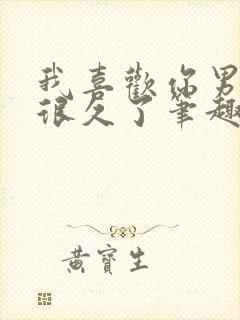 我喜歡你男
很久了筆趣
黃寶生